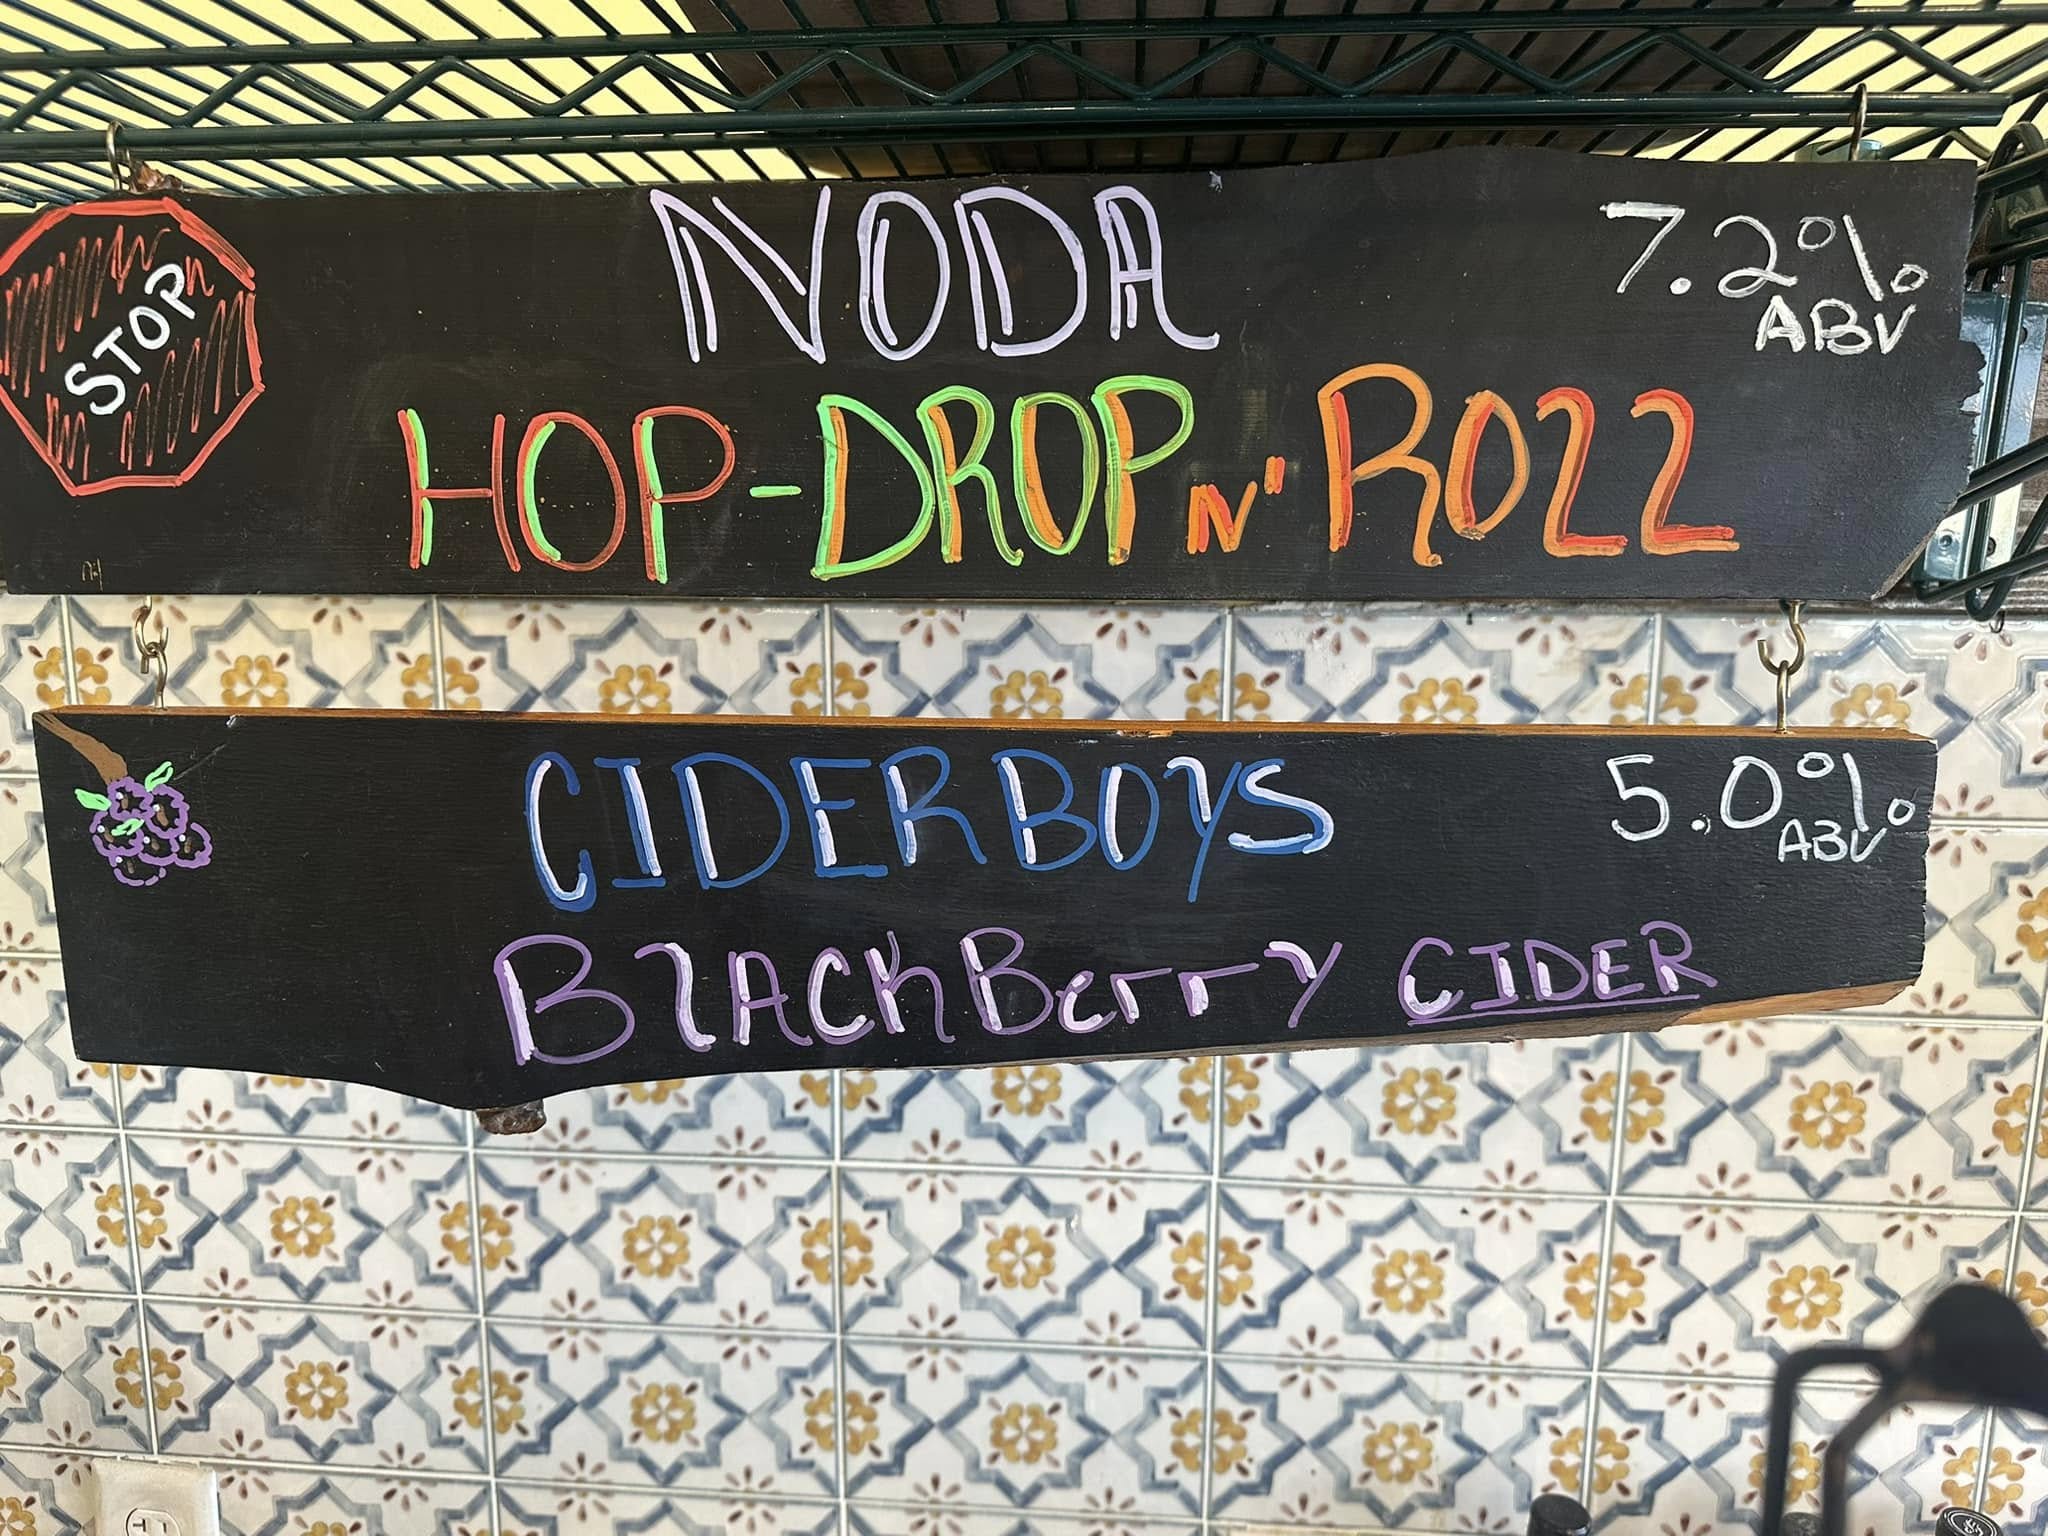 STOP
NODA
7.2%
ABV
HOP-DROP N' ROLL
CIDERBOYS
5.0%
ABV
BlACKBerry CIDER